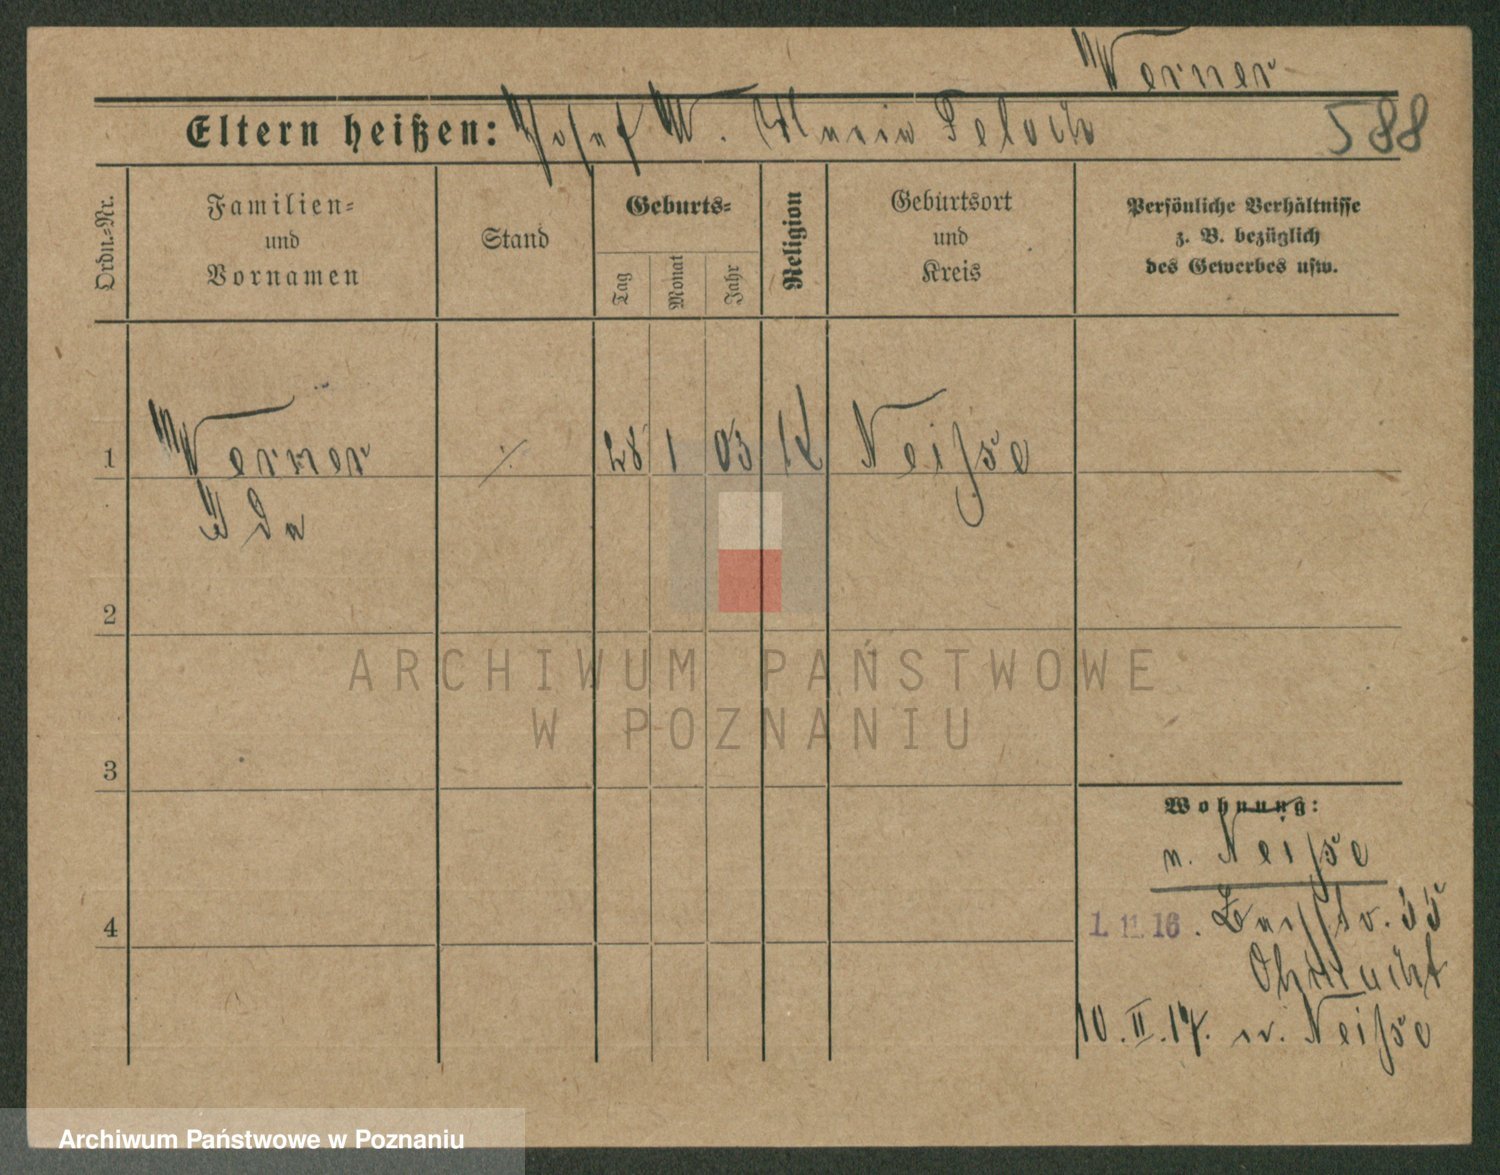 Werner
Eltern heißen: Josef W. Maria
588
Ordn.-Nr.
Familien-
und
Vornamen
Stand
Geburts-
Tag
Monat
Jahr
Religion
Geburtsort
und
Kreis
Persönliche Verhältnisse
z. B. bezüglich
des Gewerbes usw.
1 Werner ./. 28 1 03 K Neisse
Ida
2
ARCHIWUM PAŃSTWOWE
W POZNANIU
3
Wohnung:
n. Neisse
4
1. 11. 16.
10. II. 17. n. Neisse
Archiwum Państwowe w Poznaniu